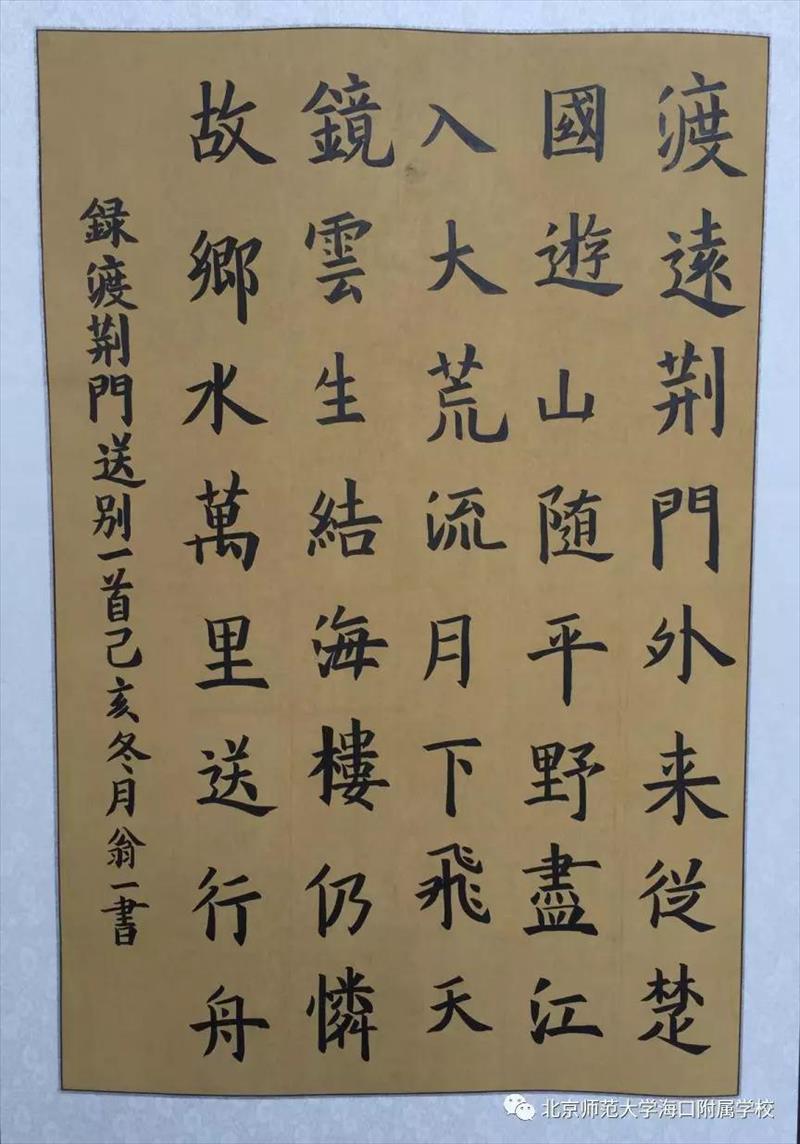 渡遠荆門外来從楚
國遊山随平野盡江
入大荒流月下飛天
鏡雲生結海樓仍憐
故鄉水萬里送行舟
録渡荆門送别一首己亥冬月翁一書
北京师范大学海口附属学校